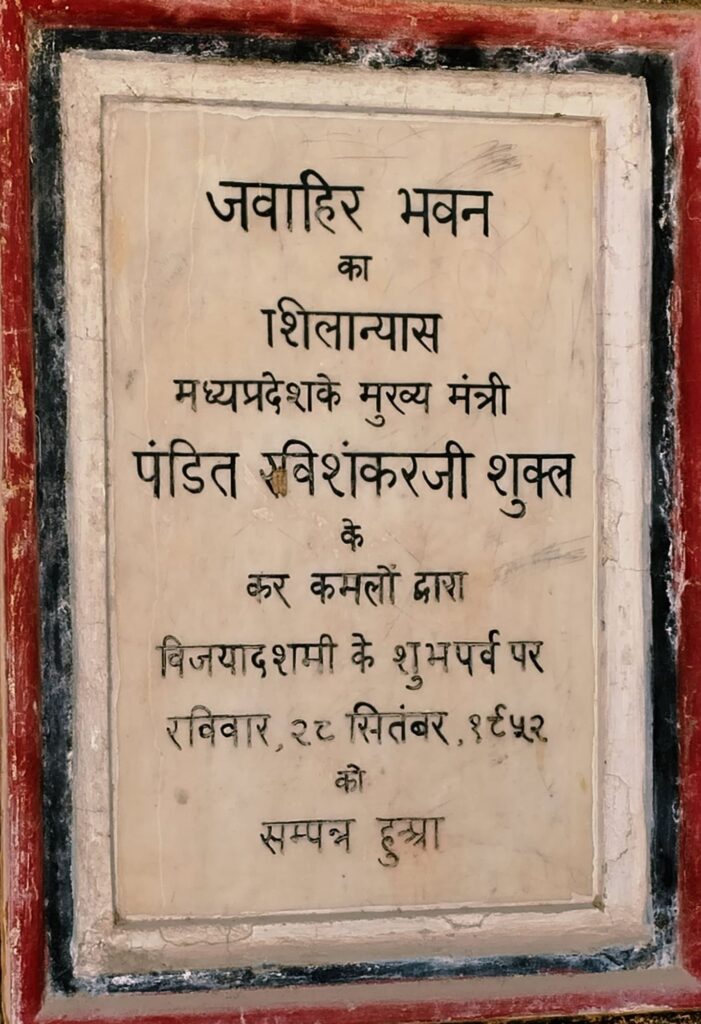 जवाहिर भवन
का
शिलान्यास
मध्यप्रदेशके मुख्य मंत्री
पंडित रविशंकरजी शुक्ल
के
कर कमलों द्वारा
विजयादशमी के शुभपर्व पर
रविवार, २८ सितंबर, १९५२
को
सम्पन्न हुआ